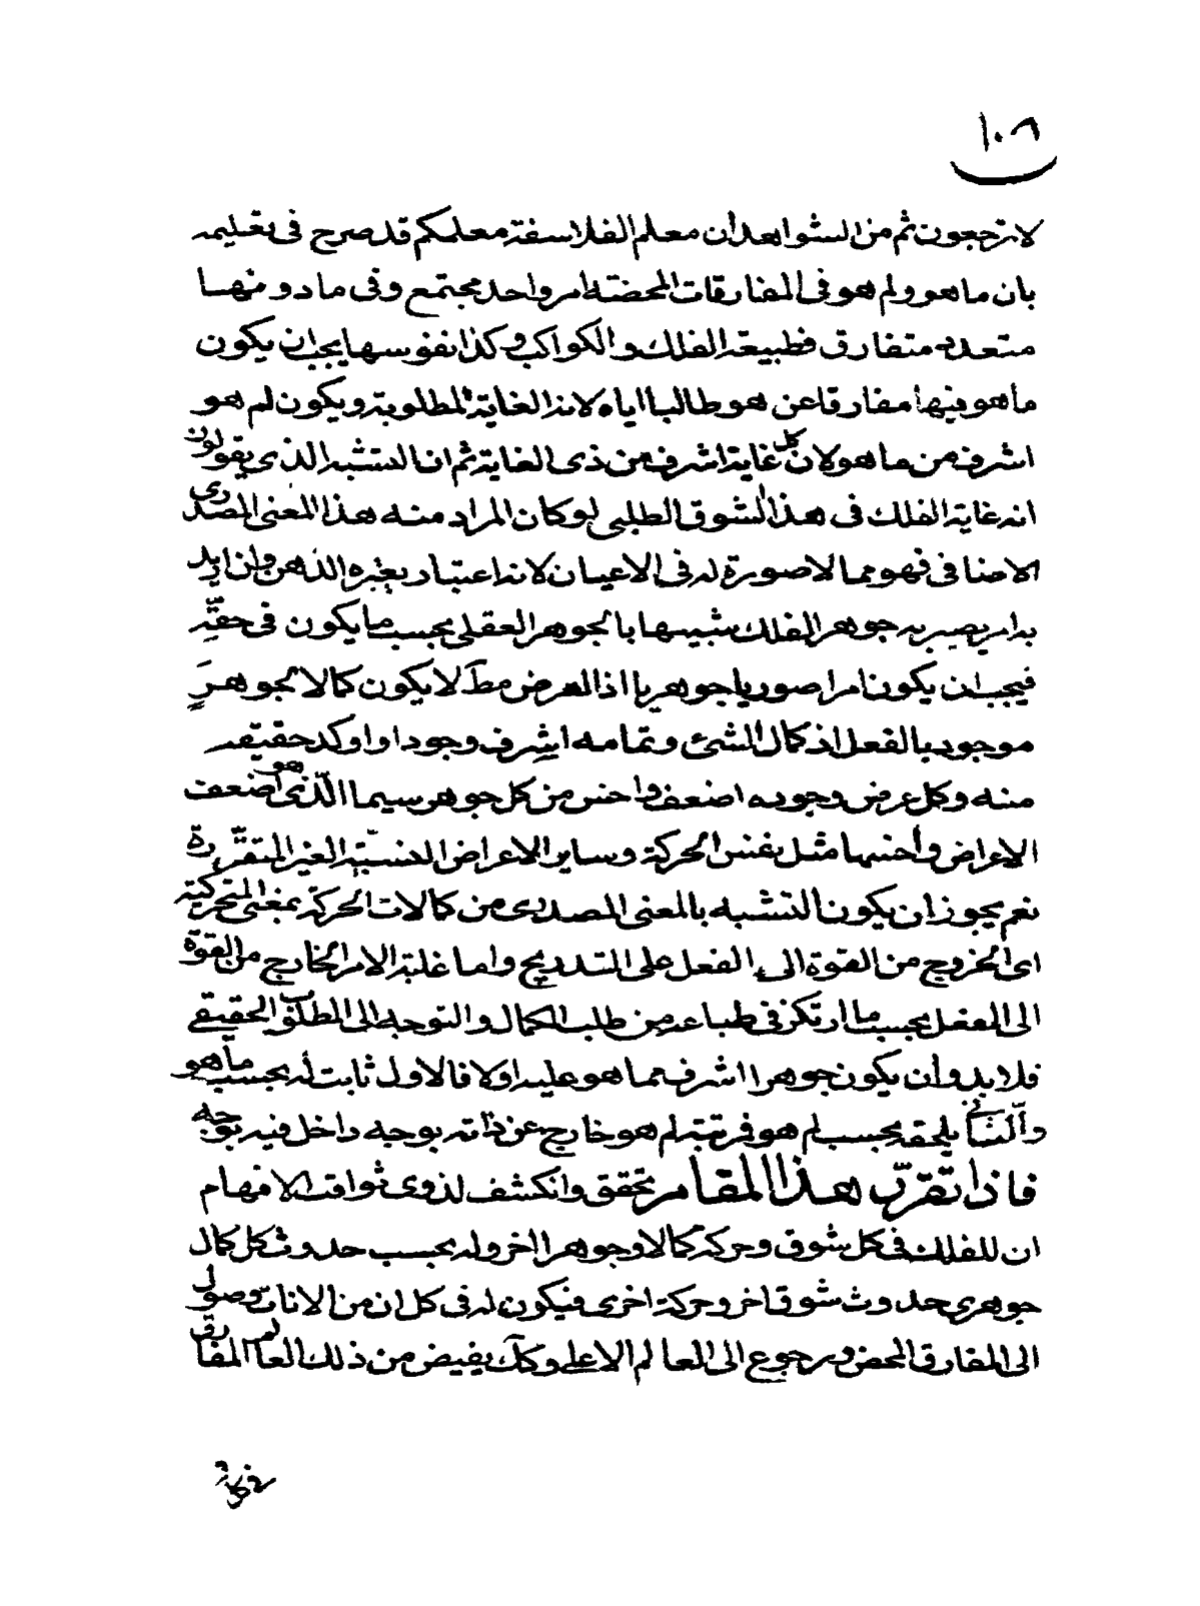 ١٠٦
لا ترجعون ثم من الشواهد ان معلم الفلاسفة معلمكم قد صرح فى تعليمه
بان ما هو ولم هو فى المفارقات المحضة امر واحد مجتمع وفى ما دونها
متعدد متفارق فطبيعة الفلك والكواكب وكذا نفوسها يجب ان يكون
ما هو فيها مفارقا عن هو طالبا اياه لانه الغاية المطلوبة ويكون لم هو
اشرف من ما هو لان كل غاية اشرف من ذى الغاية ثم ان التشبه الذى يقولون
انه غاية الفلك فى هذا الشوق الطلبى لو كان المراد منه هذا المعنى المصدرى
الاضافى فهو مما لا صورة له فى الاعيان لانه اعتبار يعتبره الذهن وان اريد
به امر يصير به جوهر الفلك شبيها بالجوهر العقلى بحسب ما يكون فى حقّه
فيجب ان يكون امرا صوريا جوهريا اذ العرض مط لا يكون كمالا لجوهرٍ
موجود بالفعل اذ كمال الشئ وتمامه اشرف وجودا واوكد حقيقة
منه وكل عرض وجوده اضعف واخس من كل جوهر سيما الّذى هو اضعف
الاعراض واخسها مثل نفس الحركة وساير الاعراض النسبيّة الغير المتقرّرة
نعم يجوز ان يكون التشبه بالمعنى المصدرى من كمالات الحركة بمعنى المتحركية
اى الخروج من القوة الى الفعل على التدريج واما غاية الامر الخارج من القوّة
الى الفعل بحسب ما ارتكز فى طباعه من طلب الكمال والتوجه الى المطلوب الحقيقے
فلا بد وان يكون جوهرا اشرف مما هو عليه اولا فالاول ثابت له بحسب ما هو
والّثانى يلحقه بحسب لم هو فرتبة لم هو خارج عن ذاته بوجه داخل فيه بوجه
فاذا تقرّر هذا المقام تحقق وانكشف لذوى ثواقب الافهام
ان للفلك فى كل شوق وحركة كمالا وجوهرا اخر وله بحسب حدوث كل كمال
جوهرى حدوث شوق اخر وحركة اخرى فيكون له فى كل ان من الانات وصول
الى المفارق المحض ورجوع الى العالم الاعلے وكك يفيض من ذلك العالم المفارق
فى كل